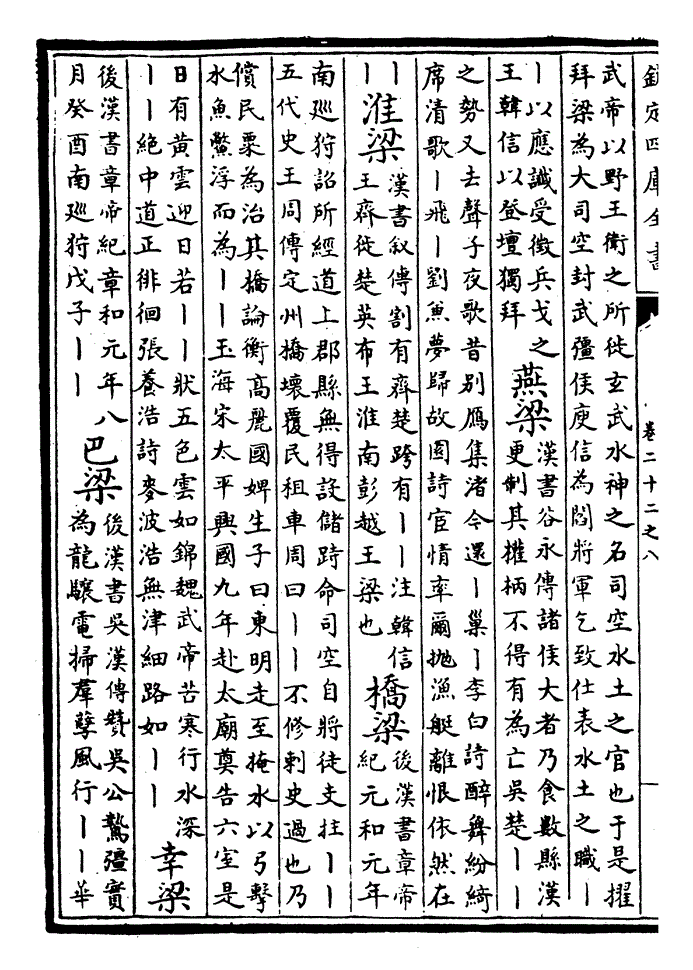 欽定四庫全書
卷二十二之八
武帝以野王衛之所徙玄武水神之名司空水土之官也于是擢
拜梁為大司空封武彊侯庾信為閻將軍乞致仕表水土之職丨
丨以應讖受徵兵戈之
王韓信以登壇獨拜
燕梁
漢書谷永傳諸侯大者乃食數縣漢
更制其權柄不得有為亡吳楚丨丨
之勢又去聲子夜歌昔別鴈集渚今還丨巢丨李白詩醉舞紛綺
席清歌丨飛丨劉兼夢歸故園詩宦情率爾拋漁艇離恨依然在
丨
丨
淮梁
漢書叙傳割有齊楚跨有丨丨注韓信
王齊徙楚英布王淮南彭越王梁也
橋梁
後漢書章帝
紀元和元年
南廵狩詔所經道上郡縣無得設儲跱命司空自將徒支拄丨丨
五代史王周傳定州橋壞覆民租車周曰丨丨不修刺史過也乃
償民粟為治其橋論衡高麗國婢生子曰東明走至掩水以弓擊
水魚鼈浮而為丨丨玉海宋太平興國九年赴太廟奠告六室是
日有黃雲迎日若丨丨狀五色雲如錦魏武帝苦寒行水深
丨丨絶中道正徘徊張養浩詩麥波浩無津細路如丨丨
幸梁
後漢書章帝紀章和元年八
月癸酉南廵狩戊子丨丨
巴梁
後漢書吳漢傳贊吳公鷙彊實
為龍驤電掃羣孽風行丨丨華